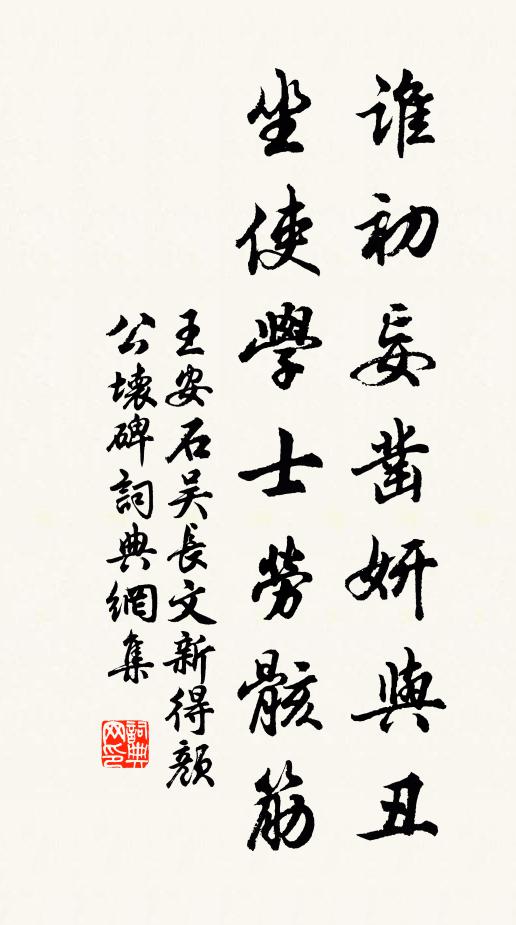 誰初妄鑿妍與丑
坐使學士勞骸筋
王安石吴長文新得顏
公壞碑詞典網集
詞典
网印